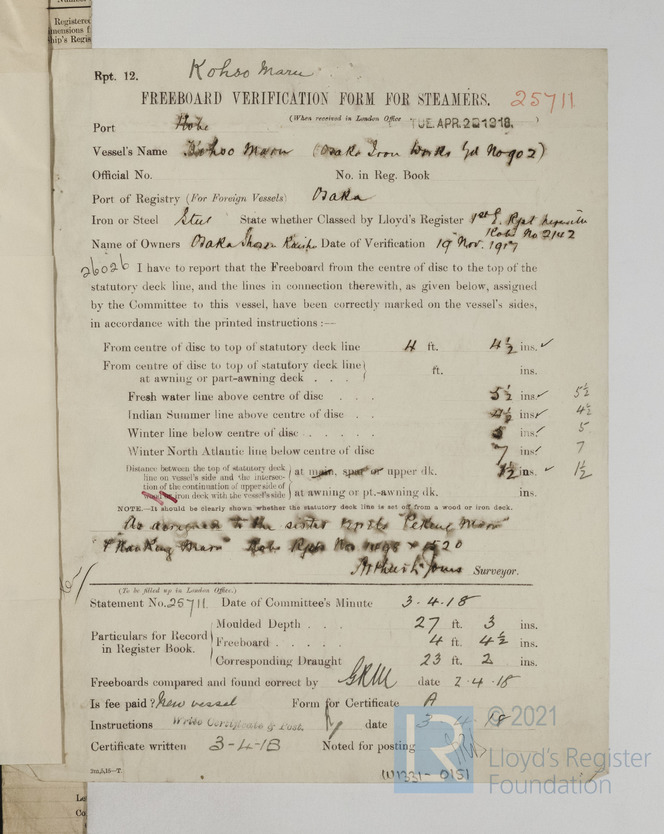 Registered
mensions f
hip's Regis
Rpt. 12.
Kohso Maru
FREEBOARD VERIFICATION FORM FOR STEAMERS.
25711
(When received in London Office TUE. APR. 2 1918. )
Port Kobe
Vessel's Name Kohso Maru (Osaka Iron Works Yd No 902)
Official No. No. in Reg. Book
Port of Registry (For Foreign Vessels) Osaka
Iron or Steel Steel State whether Classed by Lloyd's Register 1st E. Rpt
Kobe No 2142
Name of Owners Osaka Shosen Kaisha Date of Verification 19 Nov. 1917
26026 I have to report that the Freeboard from the centre of disc to the top of the
statutory deck line, and the lines in connection therewith, as given below, assigned
by the Committee to this vessel, have been correctly marked on the vessel's sides,
in accordance with the printed instructions :—
From centre of disc to top of statutory deck line 4 ft. 4½ ins. ✓
From centre of disc to top of statutory deck line
at awning or part-awning deck . . . ft. ins.
Fresh water line above centre of disc . . . 5½ ins. ✓ 5½
Indian Summer line above centre of disc . . 4½ ins. ✓ 4½
Winter line below centre of disc . . . . . 5 ins. ✓ 5
Winter North Atlantic line below centre of disc 7 ins. ✓ 7
Distance between the top of statutory deck
line on vessel's side and the intersec-
tion of the continuation of upper side of
wood or iron deck with the vessel's side
at main, spar or upper dk. 1½ ins. ✓ 1½
at awning or pt.-awning dk. ins.
NOTE.—It should be clearly shown whether the statutory deck line is set off from a wood or iron deck.
As assigned to the sister vessels "Peking Maru"
& "Nanking Maru" Kobe Rpts Nos 1520
Surveyor.
(To be filled up in London Office.)
Statement No. 25711 Date of Committee's Minute 3-4-18
Particulars for Record
in Register Book.
Moulded Depth . . . 27 ft. 3 ins.
Freeboard . . . . . 4 ft. 4½ ins.
Corresponding Draught 23 ft. 2 ins.
Freeboards compared and found correct by GRM date 2-4-18
Is fee paid? New vessel Form for Certificate A
Instructions Write Certificate & Post. date 3-4-18
Certificate written 3-4-18 Noted for posting
2m,5,15—T.
(W)1331-0151
© 2021
LR
Lloyd's Register
Foundation
Lo
Co